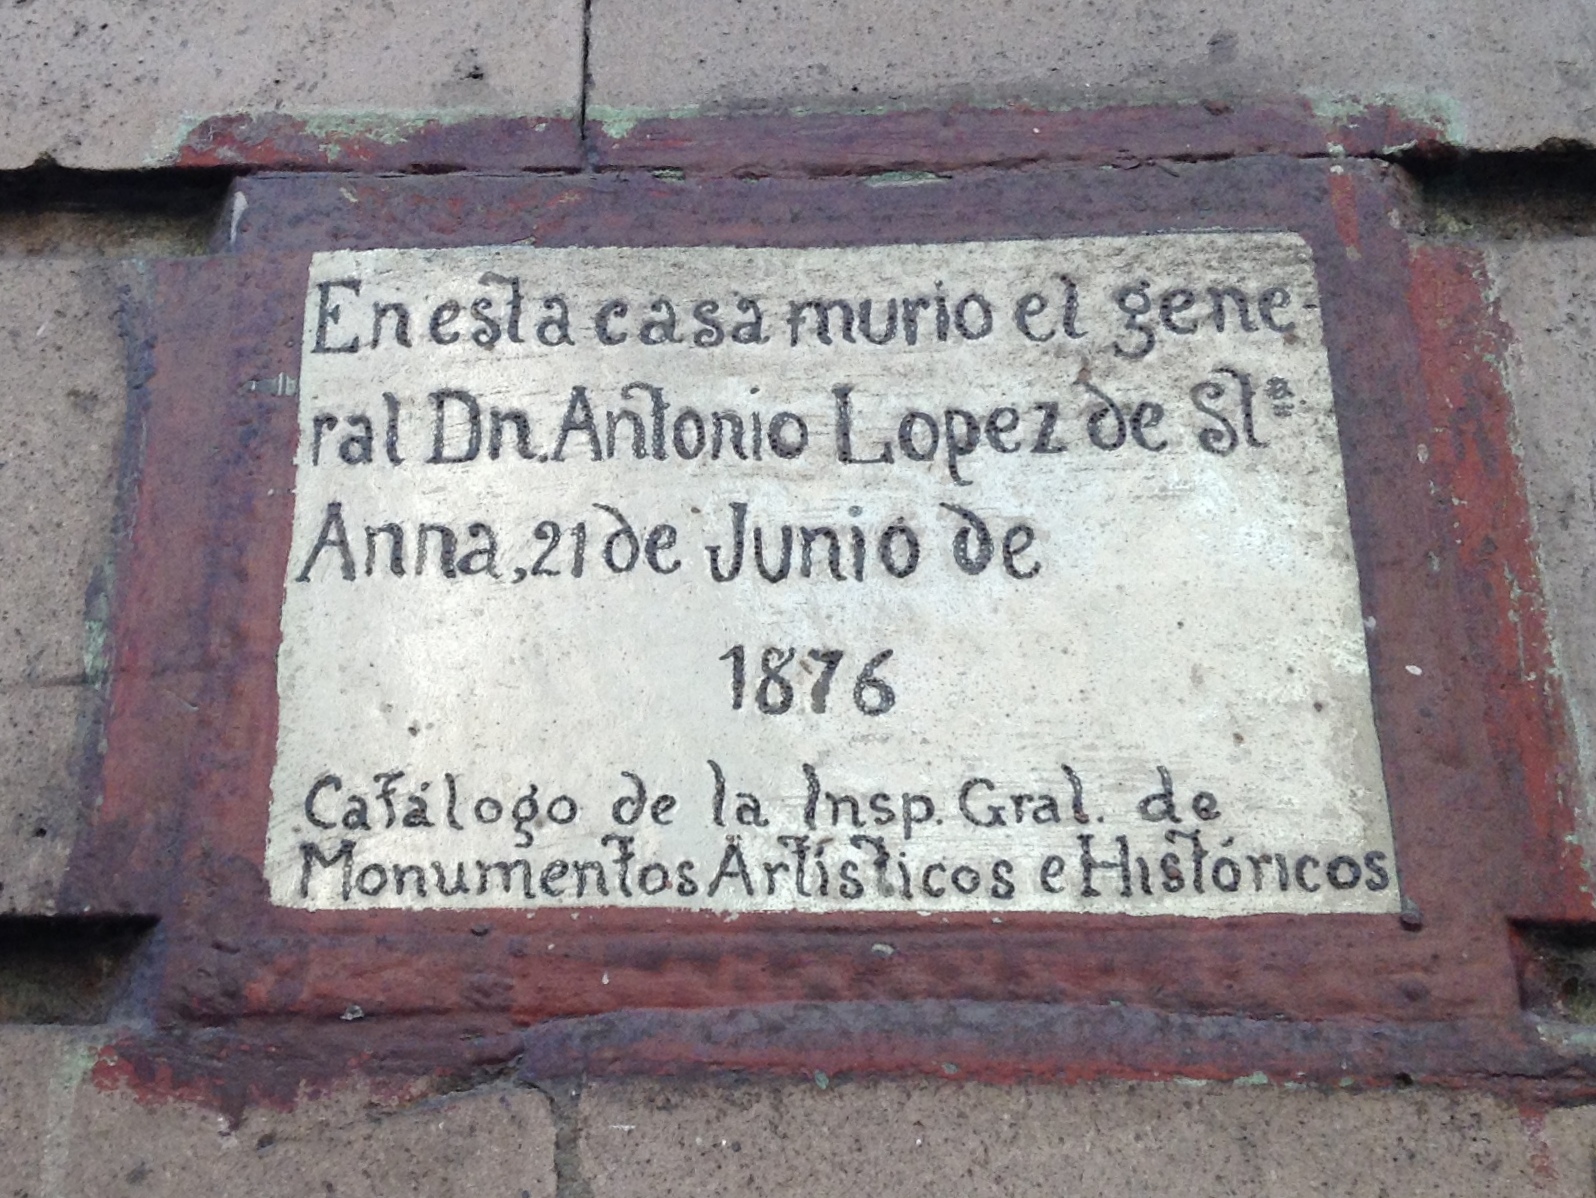 En esta casa murio el gene-
ral Dn. Antonio Lopez de Stª
Anna, 21 de Junio de
1876
Catálogo de la Insp. Gral. de
Monumentos Artísticos e Históricos